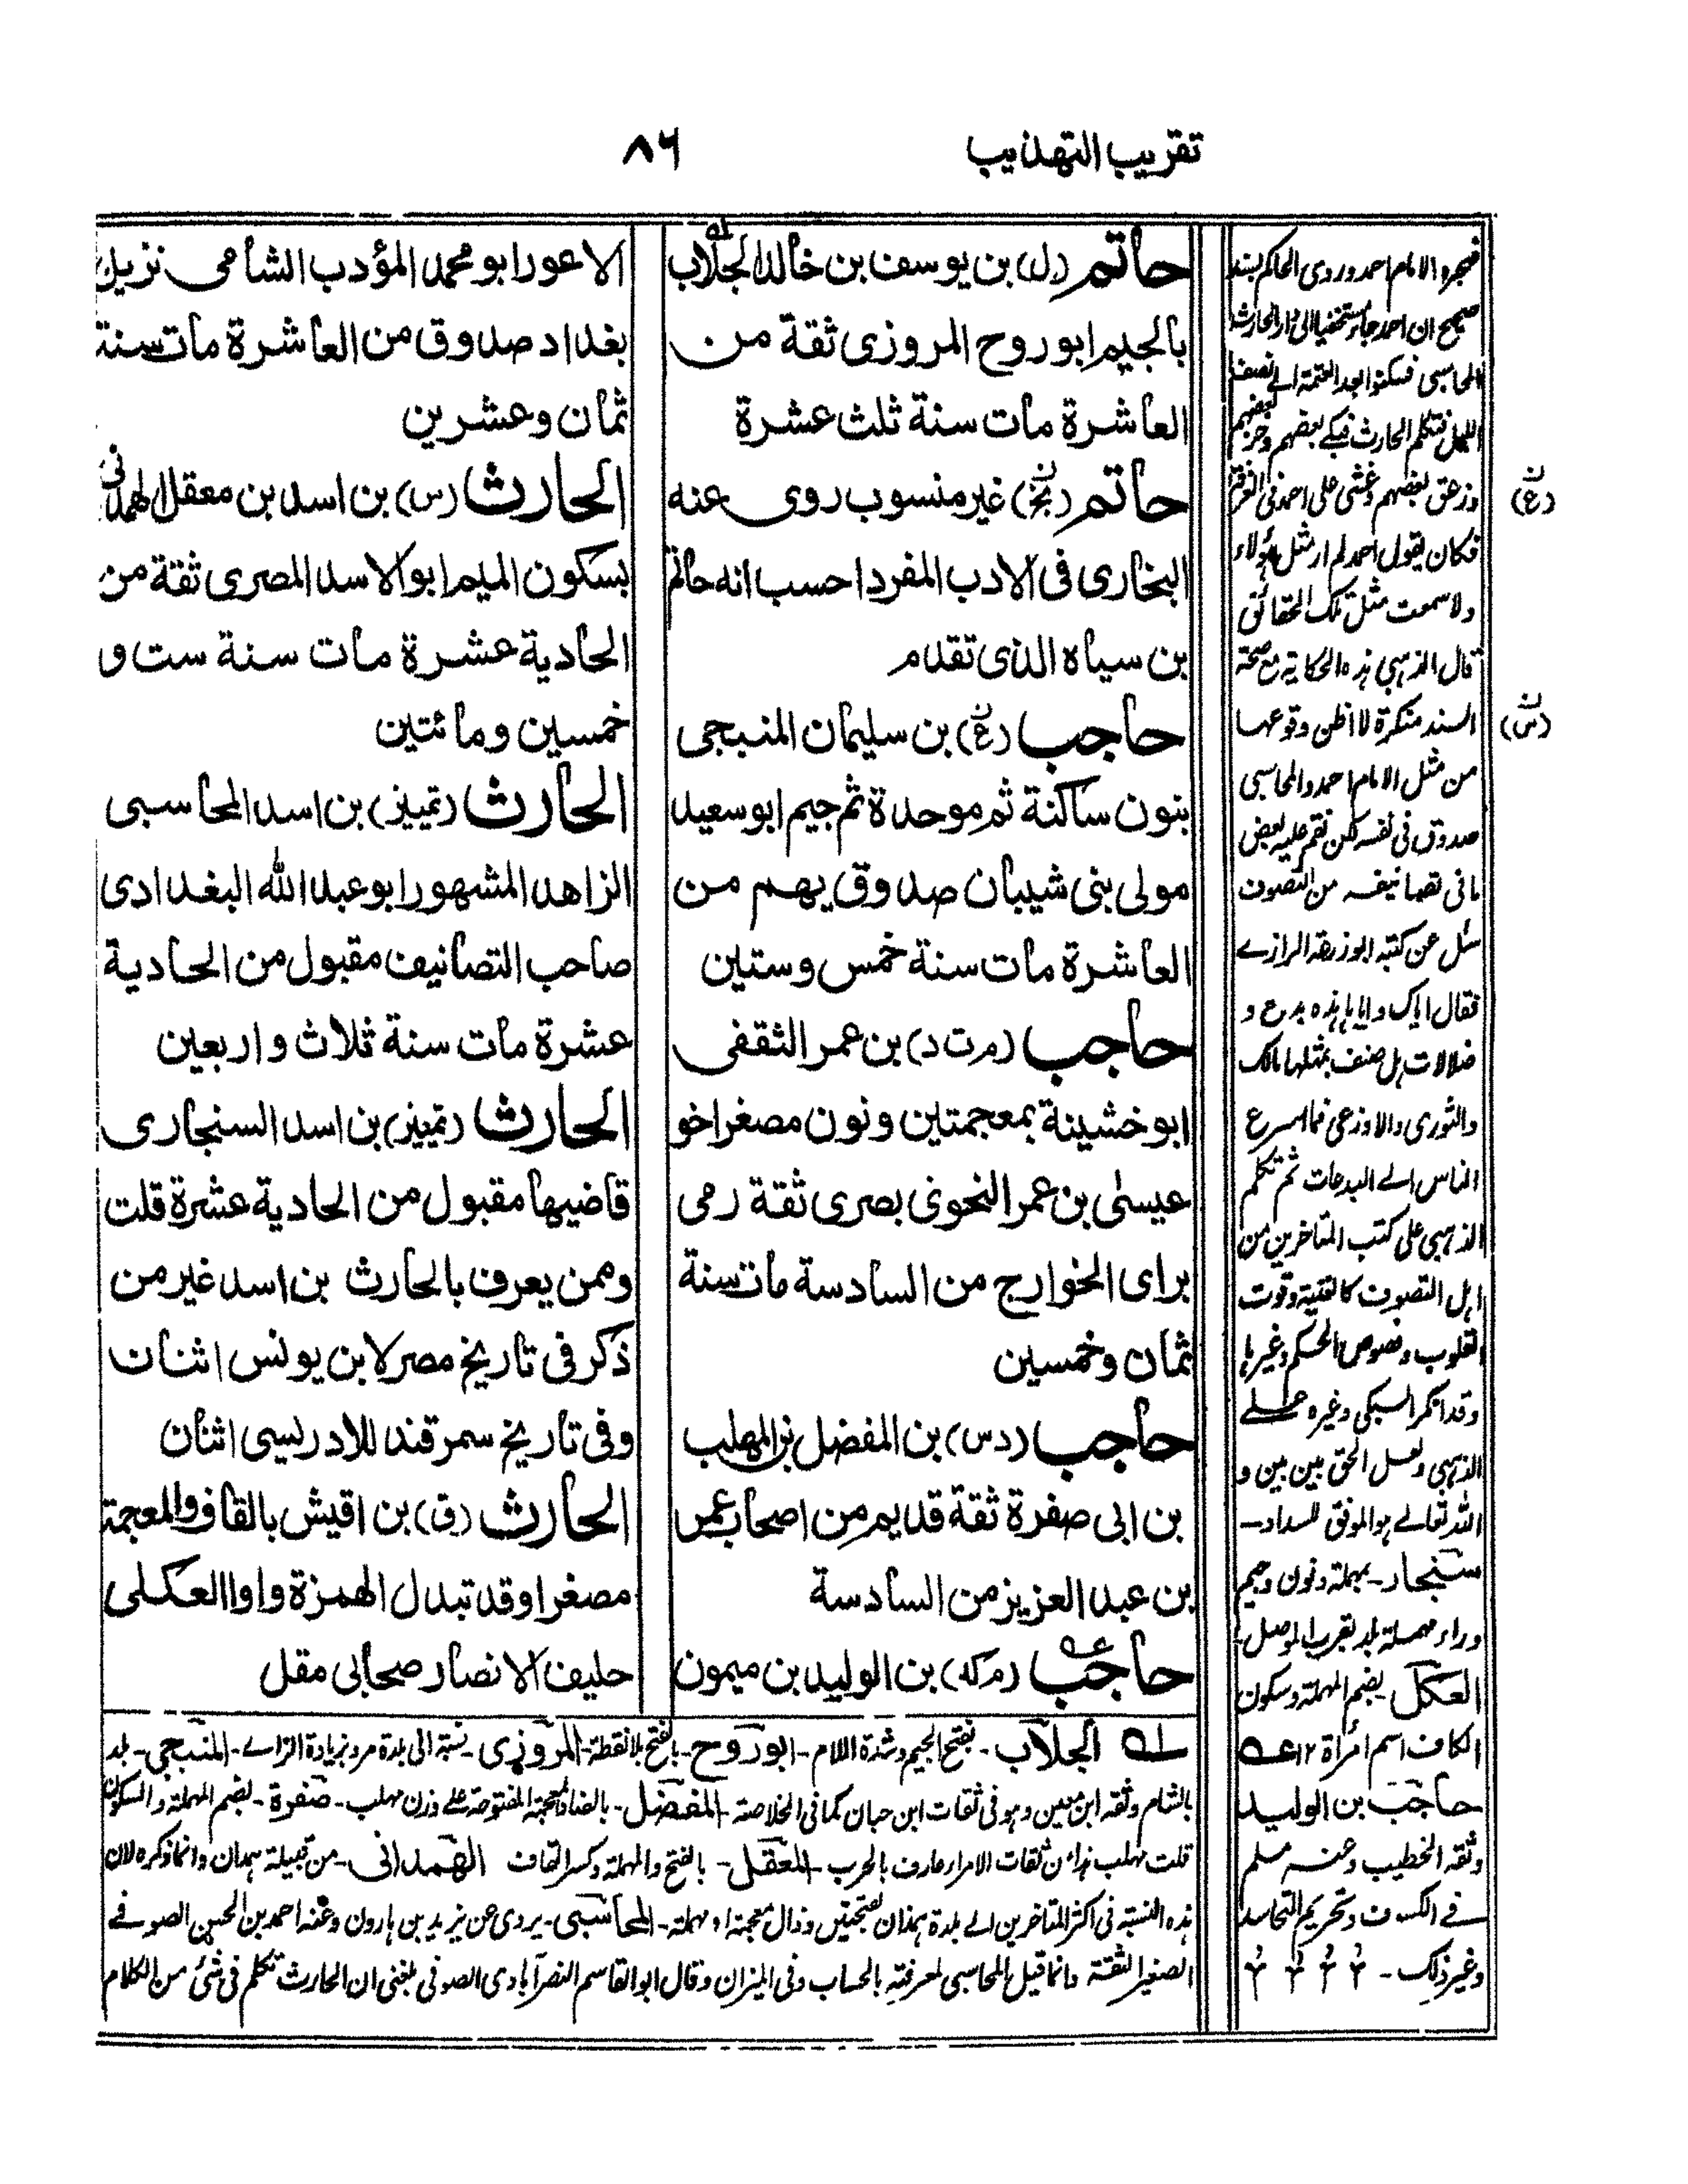 تقريب التهذيب
٨٦
حاتم (ل) بن يوسف بن خالد الجلاب
بالجيم ابو روح المروزى ثقة من
العاشرة مات سنة ثلث عشرة
حاتم (بخ) غير منسوب روى عنه
البخارى فى الادب المفرد احسب انه حاتم
بن سياه الذى تقدم
حاجب (ن) بن سليمان المنبجى
بنون ساكنة ثم موحدة ثم جيم ابو سعيد
مولى بنى شيبان صدوق يهم من
العاشرة مات سنة خمس وستين
حاجب (م ت د) بن عمر الثقفى
ابو خشينة بمعجمتين ونون مصغرا خو
عيسى بن عمر النحوى بصرى ثقة رمى
براى الخوارج من السادسة مات سنة
ثمان وخمسين
حاجب (دس) بن المفضل بن المهلب
بن ابى صفرة ثقة قديم من اصحاب عمر
بن عبد العزيز من السادسة
حاجب (م كد) بن الوليد بن ميمون
الاعور ابو محمد المؤدب الشامى نزيل
بغداد صدوق من العاشرة مات سنة
ثمان وعشرين
الحارث (س) بن اسد بن معقل الهمدانى
بسكون الميم ابو الاسد المصرى ثقة من
الحادية عشرة مات سنة ست و
خمسين ومائتين
الحارث (تمييز) بن اسد المحاسبى
الزاهد المشهور ابو عبد الله البغدادى
صاحب التصانيف مقبول من الحادية
عشرة مات سنة ثلاث واربعين
الحارث (تمييز) بن اسد السنجارى
قاضيها مقبول من الحادية عشرة قلت
وممن يعرف بالحارث بن اسد غير من
ذكر فى تاريخ مصر لابن يونس اثنان
وفى تاريخ سمرقند للادريسى اثنان
الحارث (ق) بن اقيش بالقاف والمعجمة
مصغرا وقد تبدل الهمزة واوا العكلى
حليف الانصار صحابى مقل
له الجلاب - بفتح الجيم وشدة اللام - ابو روح - بالفتح بلا نقطة - المروزى - نسبة الى بلدة مرو بزيادة الزاے - المنبجى - بلد
بالشام وثقه ابن معين وهو فى ثقات ابن حبان كما فى الخلاصة - المفضل - بالضاد المعجمة المفتوحة على وزن مهلب - صفرة - بضم المهملة والسكون
قلت مهلب هذا من ثقات الامراء عارف بالحرب - المعقل - بالفتح والمهملة وكسر القاف الهمدانى - من قبيلة همدان وانما ذكره لان
هذه النسبة فى اكثر المتاخرين الے بلدة همذان بفتحتين وذال معجمة او مهملة - المحاسبى - يروى عن يزيد بن هارون وعنه احمد بن الحسن الصوفے
الصغير الثقة وانما قيل المحاسبى لمعرفته بالحساب وفى الميزان وقال ابو القاسم النصرآبادى الصوفى بلغنى ان الحارث تكلم فى شئ من الكلام
فهجره الامام احمد وروى الحاكم بسند
صحيح ان احمد جاء مستخفيا الى دار الحارث
المحاسبى فسكنوا بعد العتمة الے نصف
الليل فتكلم الحارث فبكے بعضهم وحن بعضهم
وزعق بعضهم وغشى على احمد فى الغرفة
فكان يقول احمد لم ار مثل هؤلاء
ولا سمعت مثل تلك الحقائق
قال الذهبى هذه الحكاية مع صحة
السند منكرة لا اظن وقوعها
من مثل الامام احمد والمحاسبى
صدوق فى نفسه لكن نقم عليه بعض
ما فى تصانيفه من التصوف
سئل عن كتبه ابو زرعة الرازے
فقال اياك وايا ها هذه بدع و
ضلالات هل صنف بمثلها مالك
والثورى والاوزعى فما اسرع
الناس الے البدعات ثم تكلم
الذهبى على كتب المتاخرين من
اهل التصوف كالغنية وقوت
القلوب وفصوص الحكم وغيرها
وقد انكر السبكى وغيره علے
الذهبى ولعل الحق بين بين و
الله تعالے هو الموفق للسداد -
سنجار - بمهملة ونون وجيم
وراء مهملة بلد بقرب الموصل -
العكل بضم المهملة وسكون
الكاف اسم امرأة ١٢ عه
حاجب بن الوليد
وثقه الخطيب وعنه مسلم
فے الكسوف وتحريم التحاسد
وغير ذلك -
(ن ع)
(ن س)